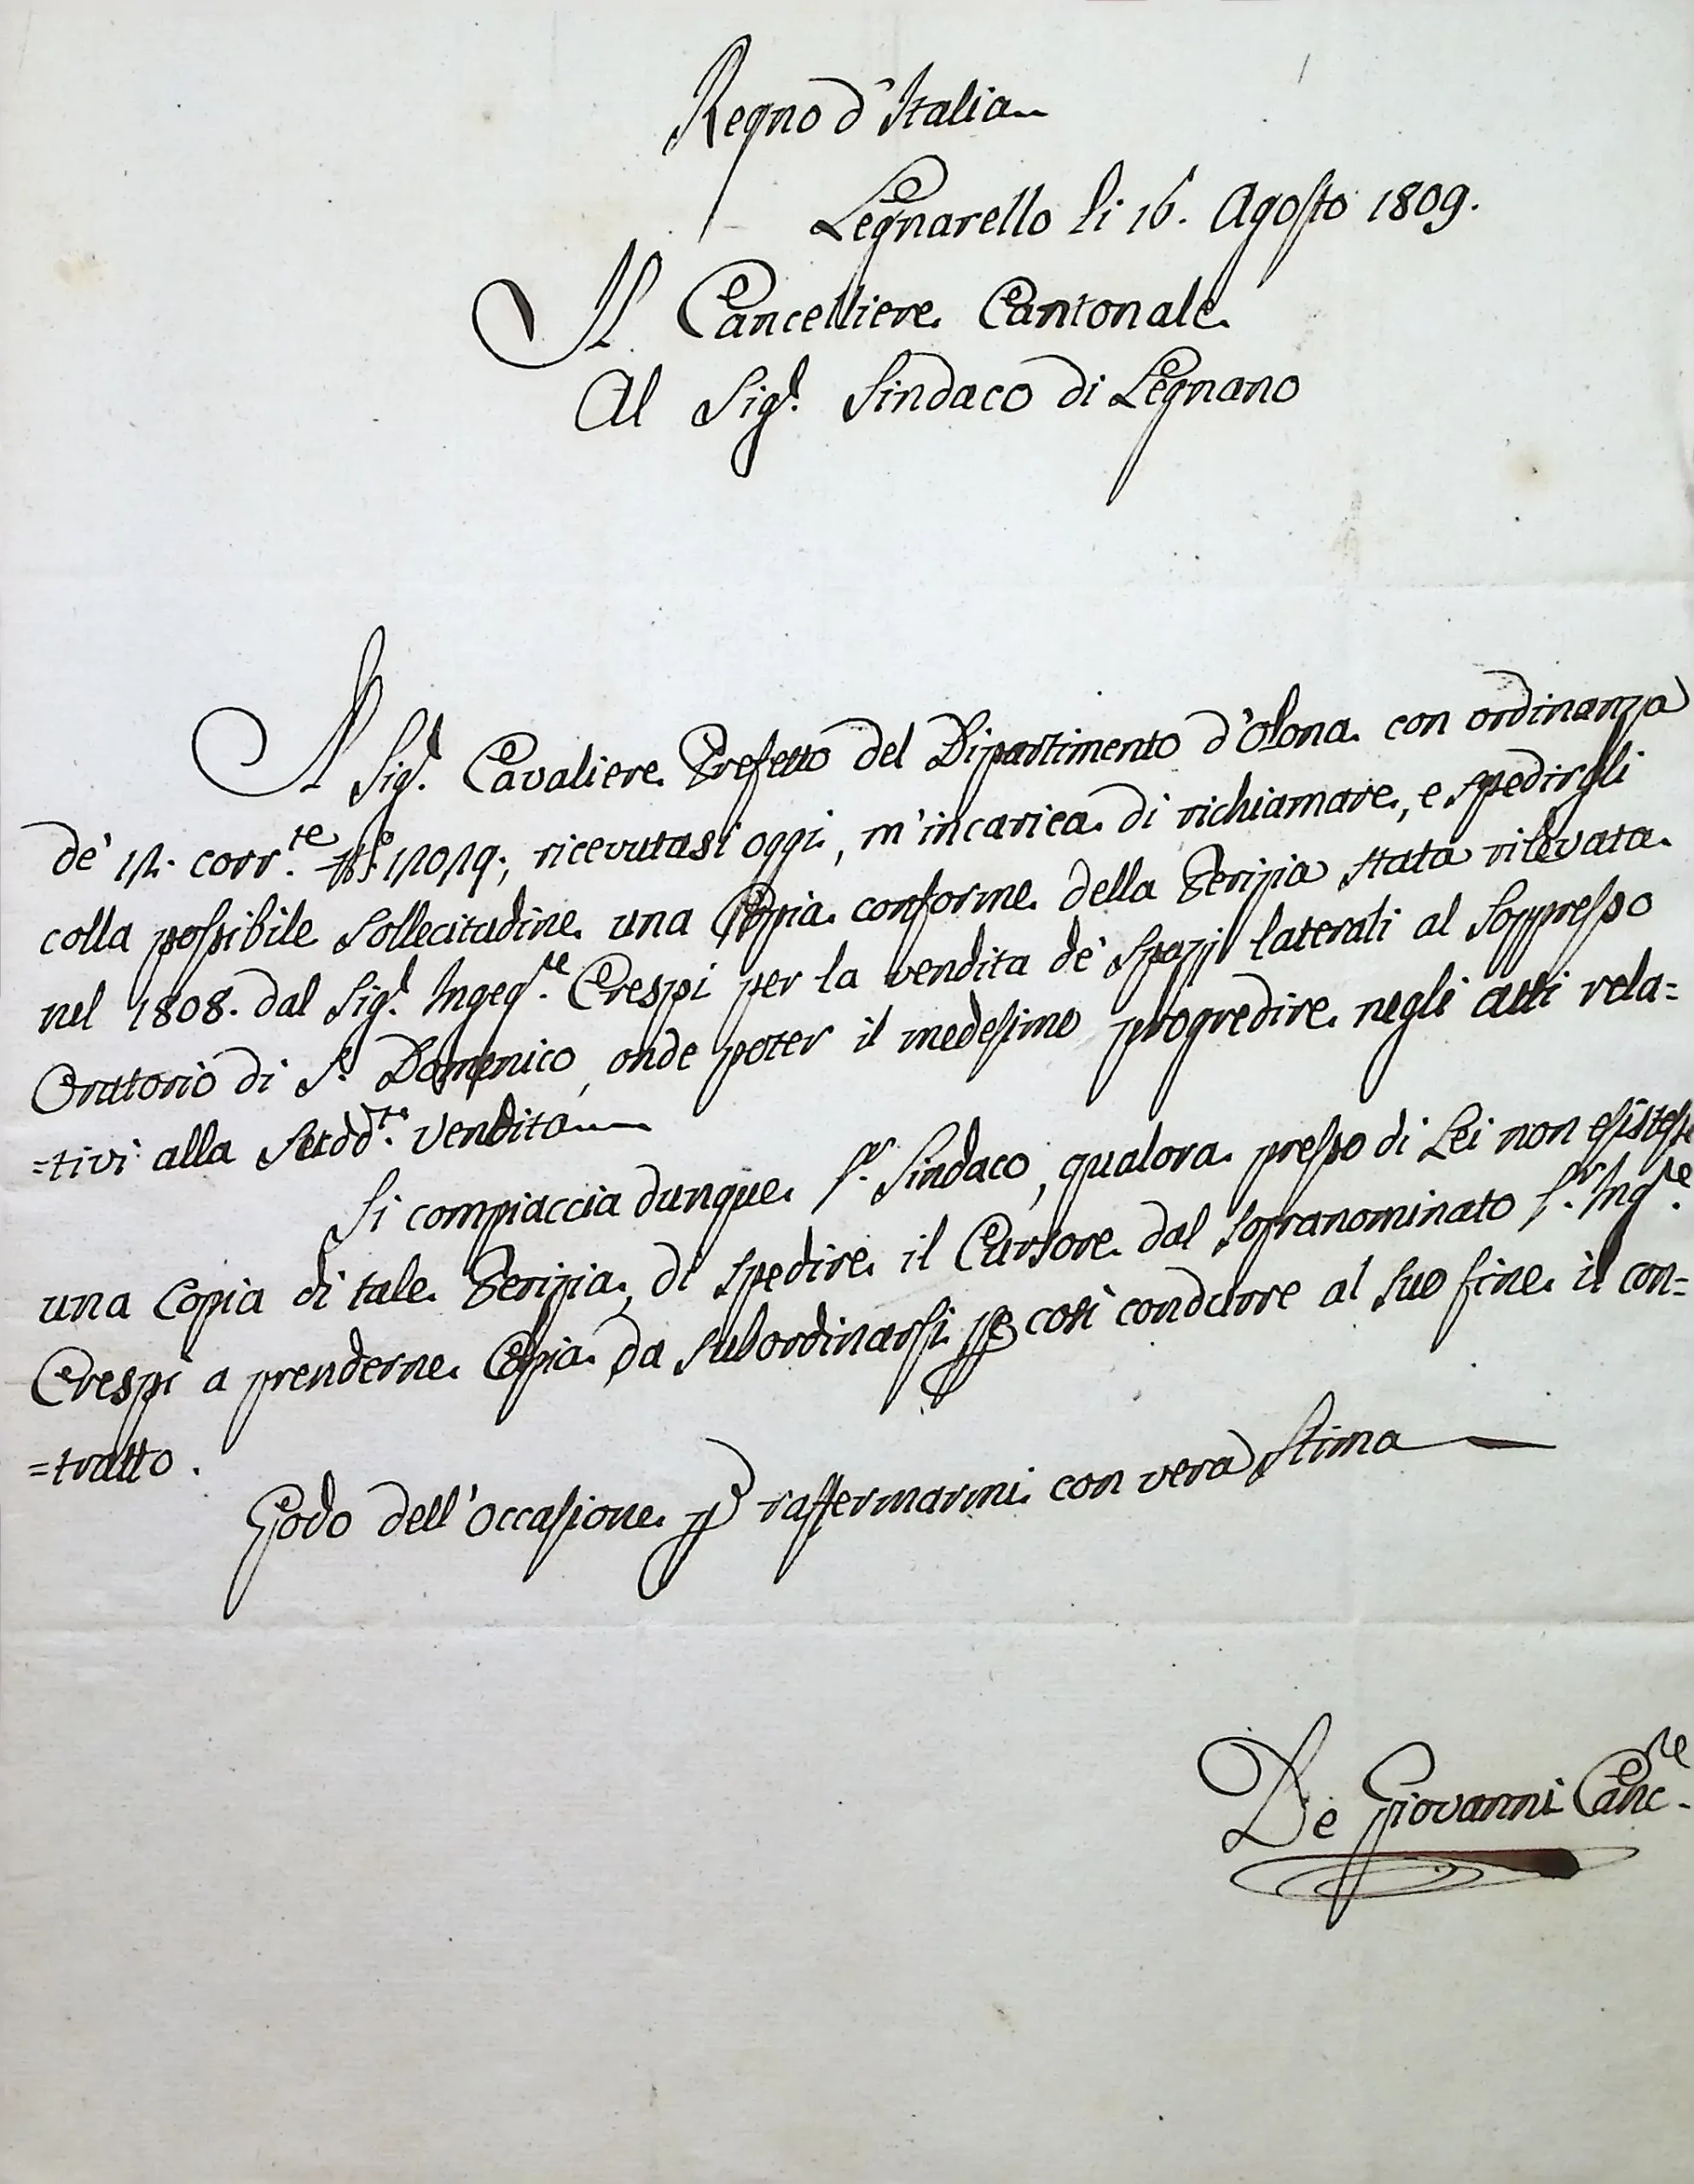 Regno d'Italia
Legnarello li 16. Agosto 1809.
Il Cancelliere Cantonale
Al Sig.r Sindaco di Legnano
Il Sig.r Cavaliere Prefetto del Dipartimento d'Olona con ordinanza
de' 12. corr.te ricevutasi oggi, m'incarica di richiamare, e spedirgli
colla possibile sollecitudine una Copia conforme della Perizia stata rilevata
nel 1808. dal Sig.r Ingeg.re Crespi per la vendita de' Spazj laterali al Soppresso
Oratorio di S. Domenico, onde poter il medesimo progredire negli atti rela=
=tivi alla vendita
Si compiaccia dunque S.r Sindaco, qualora presso di Lei non esistesse
una Copia di tale Perizia, di spedire il Cursore dal sopranominato S.r Ing.re
Crespi a prenderne Copia da subordinarsi per così condurre al suo fine il con=
=tratto.
Godo dell'occasione per raffermarmi con vera stima
De Giovanni Canc.re